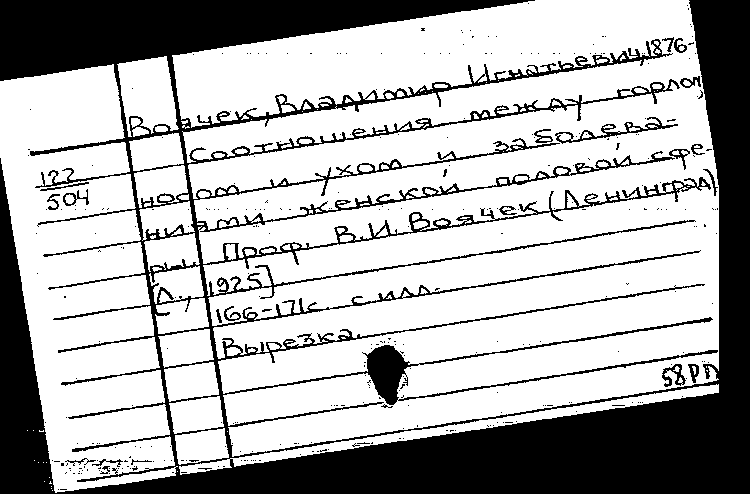 Воячек, Владимир Игнатьевич, 1876-
Соотношения между горлом,
122
504
носом и ухом и заболева-
ниями женской половой сфе-
ры. Проф. В.И. Воячек (Ленинград)
[Л., 1925].
166-171с. с илл.
Вырезка.
58РП